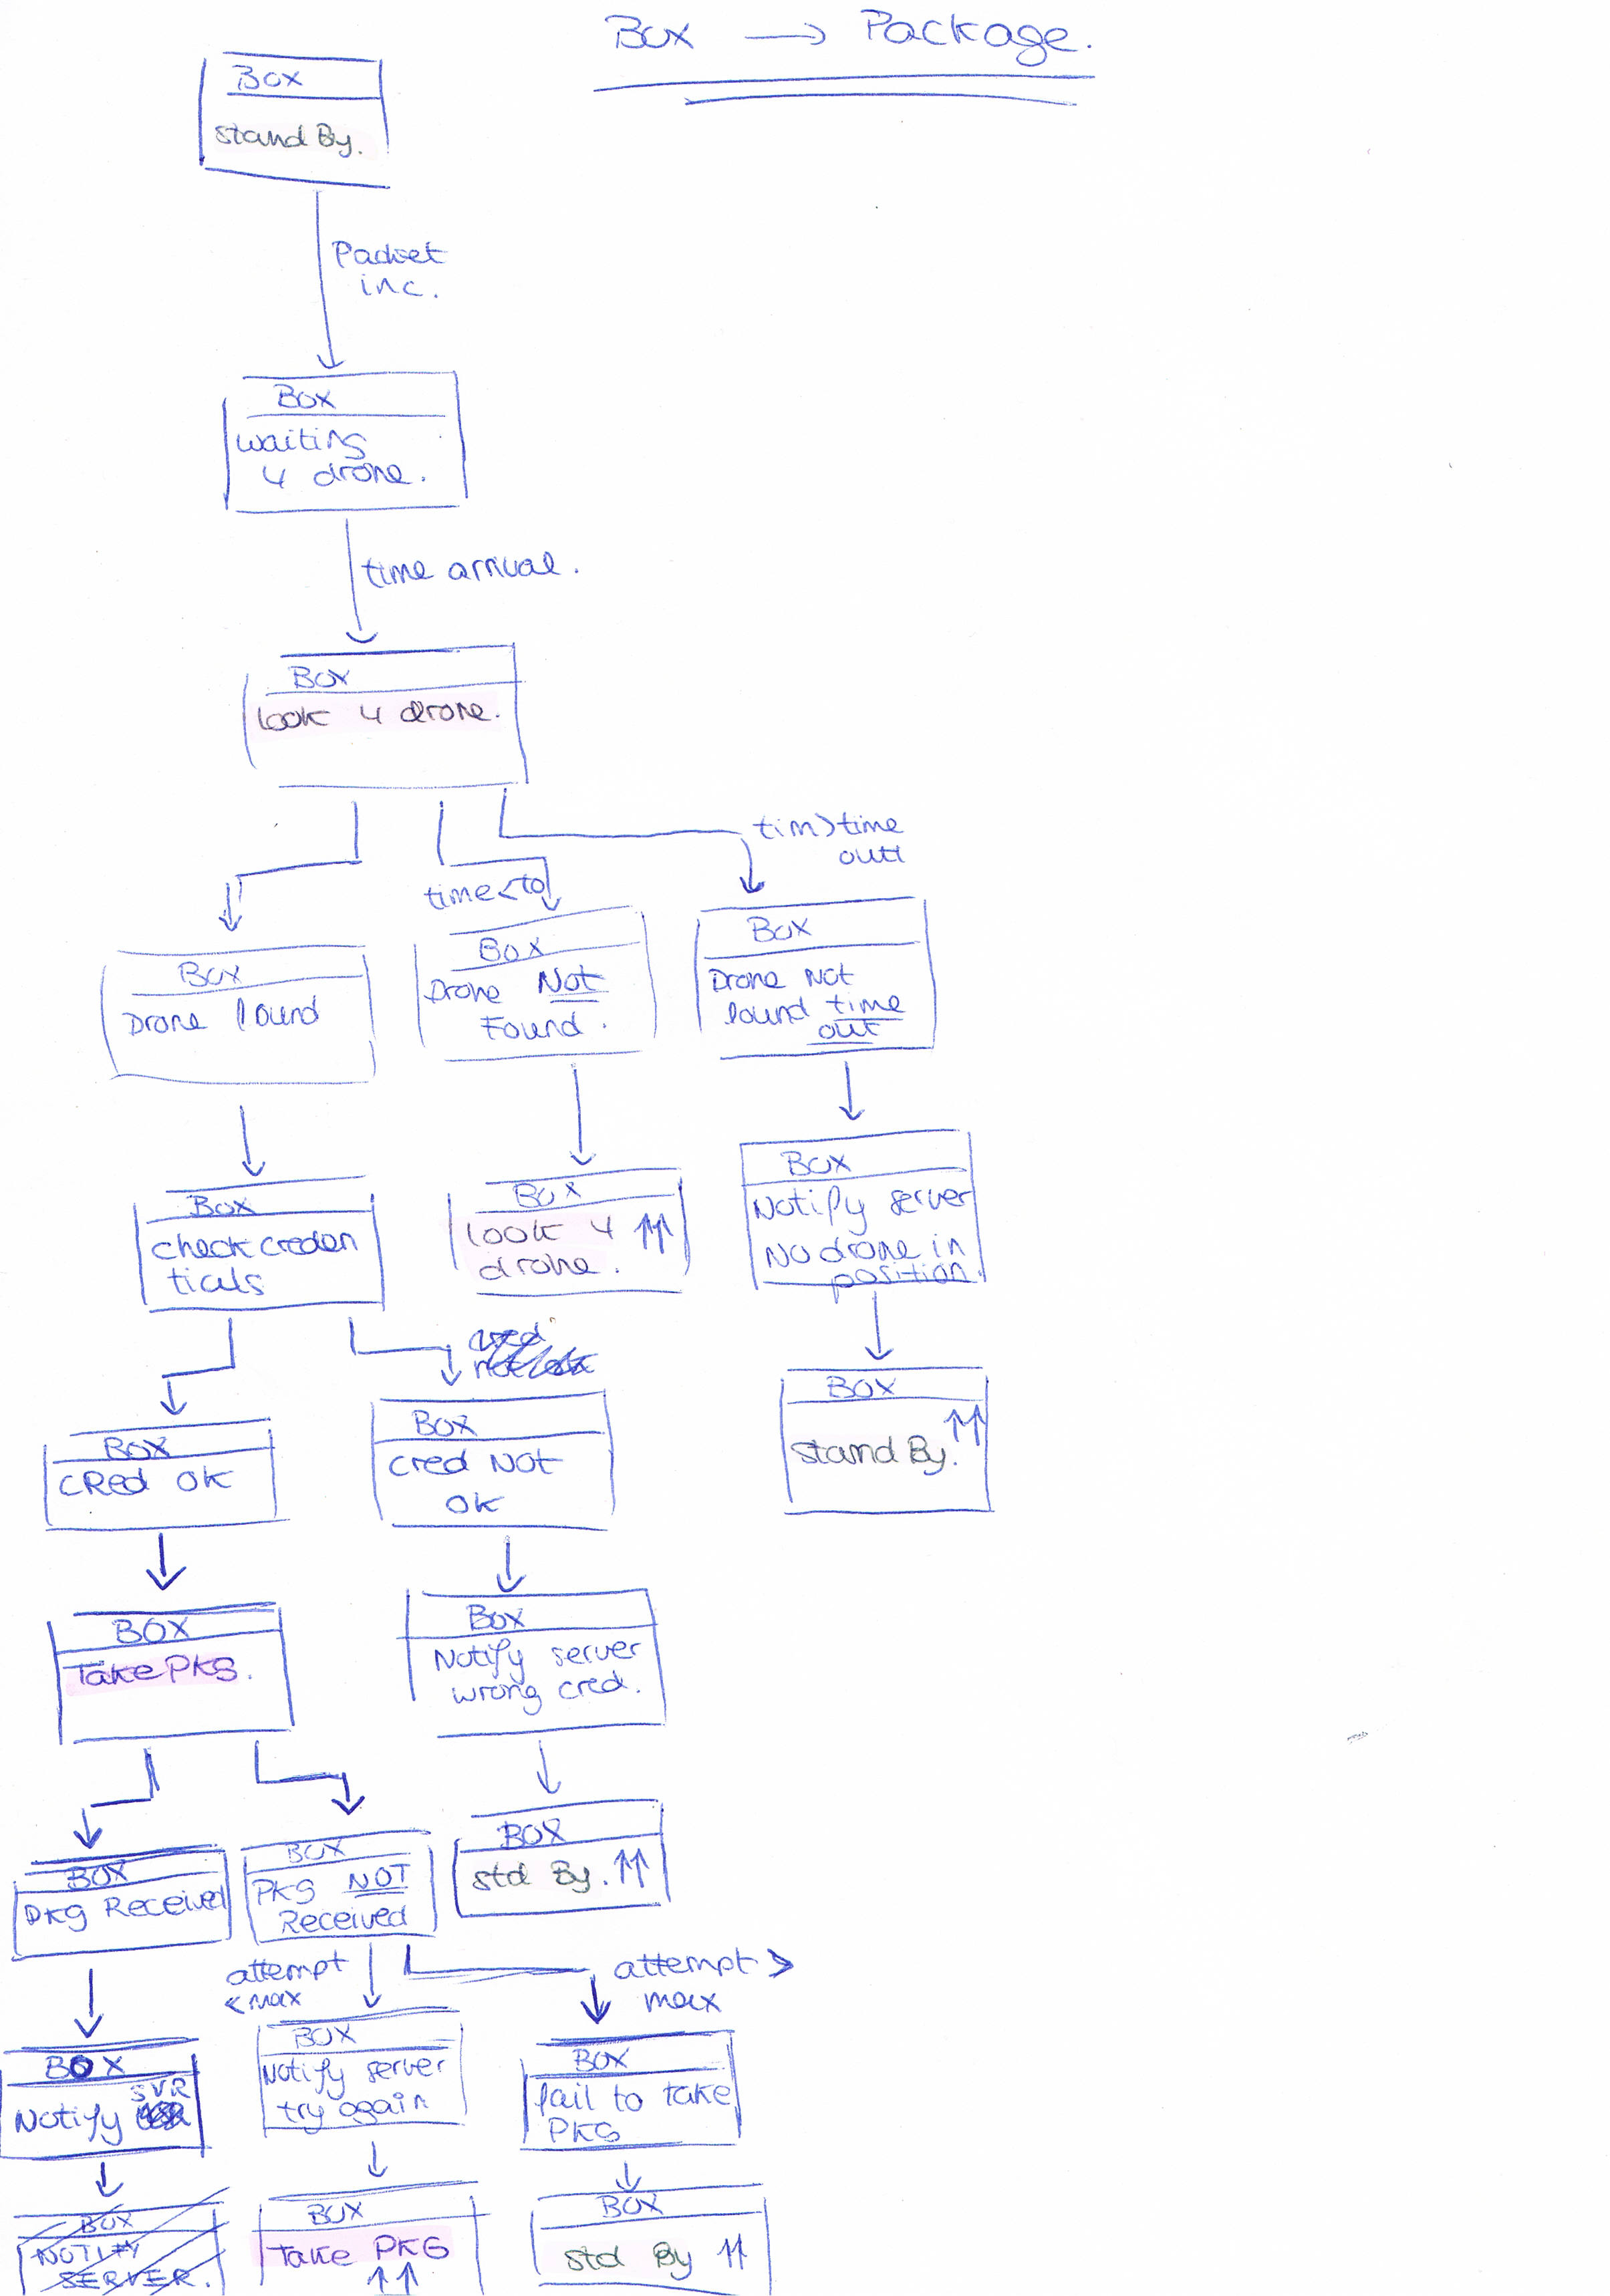 Box → Package.
Box
stand By.
Packet
inc.
Box
waiting
4 drone.
time arrival.
Box
look 4 drone.
tim>time
out
time<to
Box
Drone found
Box
Drone Not
Found.
Box
Drone Not
found time
out
Box
check creden
ticals
Box
look 4 ↑↑
drone.
Box
Notify server
No drone in
position.
cred
not
Box
CRed OK
Box
cred NOT
OK
BOX
↑↑
stand By.
BOX
Take PKG.
Box
Notify server
wrong cred.
BOX
PKg Received
BOX
PKG NOT
Received
BOX
std By. ↑↑
attempt
<max
attempt >
max
BOX
SVR
Notify
BOX
Notify server
try again
BOX
fail to take
PKG
BOX
NOTIFY
SERVER.
BOX
Take PKG
↑↑
BOX
std By ↑↑